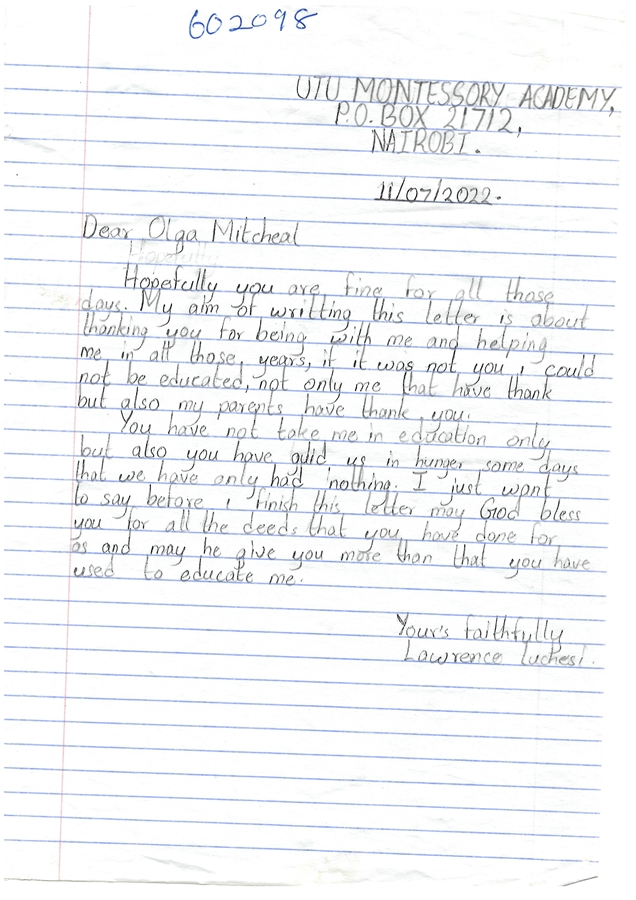 602098
UTU MONTESSORY ACADEMY,
P.O. BOX 21712,
NAIROBI.
11/07/2022.
Dear Olga Mitcheal
Hopefully
Hopefully you are fine for all those
days. My aim of writting this letter is about
thanking you for being with me and helping
me in all those, years, if it was not you i could
not be educated, not only me that have thank
but also my parents have thank you.
You have not take me in education only
but also you have auid us in hunger some days
that we have only had nothing. I just want
to say before i finish this letter may God bless
you for all the deeds that you have done for
as and may he give you more than that you have
used to educate me.
Your's faithfully
Lawrence luchesi.